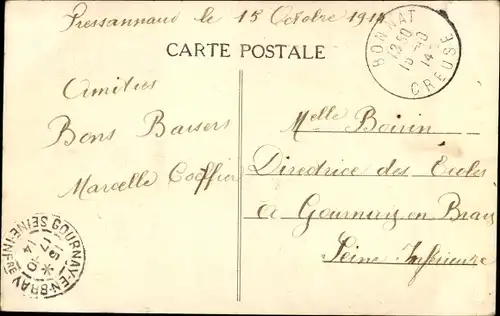 Pressannaud le 15 Octobre 1914
CARTE POSTALE
BONNAT
12 30
15 -10
14
CREUSE
Amitiés
Bons Baisers
Marcelle Coeffier
Melle Boivin
Directrice des Ecoles
à Gournay en Bray
Seine Inférieure
GOURNAY-EN-BRAY
17 -10
14
SEINE INFRE